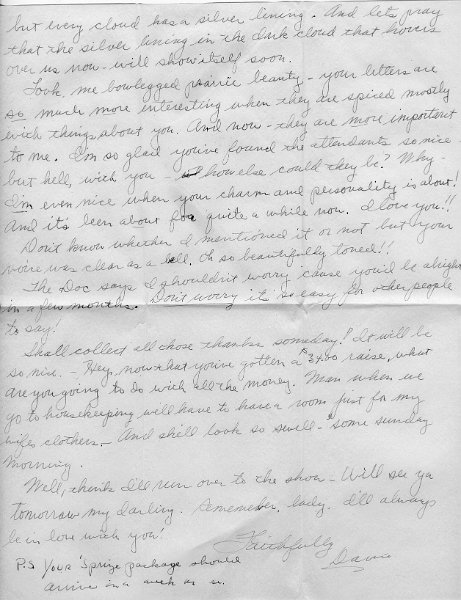 but every cloud has a silver lining. And lets pray
that the silver lining in the dark cloud that hovers
over us now - will show itself soon.
Look, me bowlegged prairie beauty - your letters are
so much more interesting when they are spiced mostly
with things about you. And now - they are more important
to me. I'm so glad you've found the attendants so nice
but hell, with you - how else could they be? Why -
I'm even nice when your charm and personality is about!
And it's been about for quite a while now. I love you!!
Don't know whether I mentioned it or not but your
voice was clear as a bell. Oh so beautifully toned!!
The Doc says I shouldn't worry cause you'd be alright
in a few months. Don't worry it is so easy for other people
to say!
Shall collect all those thanks someday! It will be
so nice. - Hey, now that you've gotten a raise, what
are you going to do with all the money. Man when we
go to housekeeping will have to have a room just for my
wifes clothers. - And she'll look so swell - "some sunday
morning.
Well, think I'll run over to the show - Will see ya
tomorrow my darling. Remember, lady. I'll always
be in love with you!
Faithfully
Dave
P.S Your 'sprize package should
arrive in a week or so.